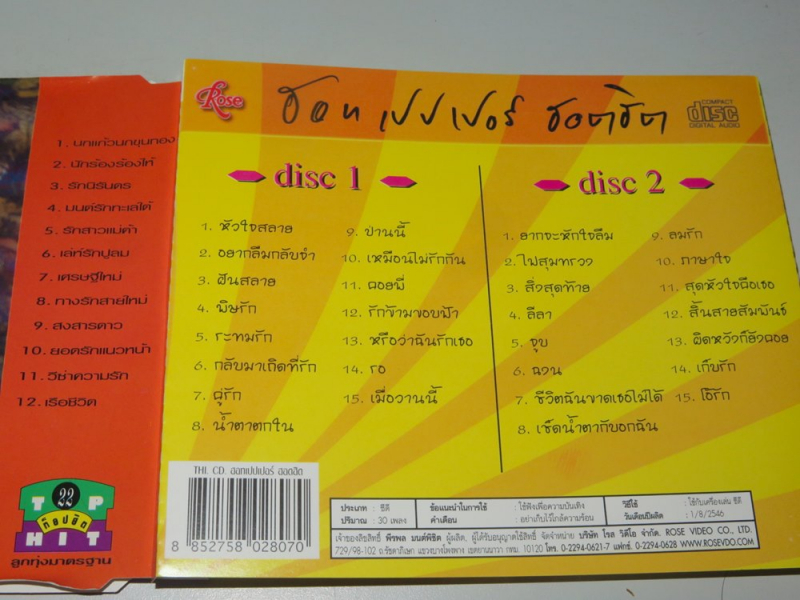 1. นกแก้วนกขุนทอง
2. นักร้องร้องไห้
3. รักนิรันดร
4. มนต์รักทะเลใต้
5. รักสาวแม่ค้า
6. เล่ห์รักปูลม
7. เศรษฐีใหม่
8. ทางรักสายใหม่
9. สงสารดาว
10. ยอดรักแนวหน้า
11. วีซ่าความรัก
12. เรือชีวิต
TOP
22
ท๊อปฮิต
HIT
ลูกทุ่งมาตรฐาน
Rose
ฮอท เปปเปอร์ ฮอตฮิต
COMPACT
disc
DIGITAL AUDIO
disc 1
1. หัวใจสลาย
2. อยากลืมกลับจำ
3. ฝันสลาย
4. พิษรัก
5. ระทมรัก
6. กลับมาเถิดที่รัก
7. คู่รัก
8. น้ำตาตกใน
9. ป่านนี้
10. เหมือนไม่รักกัน
11. คอยพี่
12. รักข้ามขอบฟ้า
13. หรือว่าฉันรักเธอ
14. รอ
15. เมื่อวานนี้
disc 2
1. อากจะหักใจลืม
2. ไฟสุมทรวง
3. สิ่งสุดท้าย
4. ลีลา
5. จูบ
6. ฉวน
7. ชีวิตฉันขาดเธอไม่ได้
8. เช็ดน้ำตากับอกฉัน
9. ลมรัก
10. ภาษาใจ
11. สุดหัวใจคือเธอ
12. สิ้นสายสัมพันธ์
13. ผิดหวังก็ยังคอย
14. เก็บรัก
15. โอ้รัก
THI. CD. ฮอทเปปเปอร์ ฮอตฮิต
8 852758 028070
ประเภท : ซีดี
ปริมาณ : 30 เพลง
ข้อแนะนำในการใช้ : ใช้ฟังเพื่อความบันเทิง
คำเตือน : อย่าเก็บไว้ใกล้ความร้อน
วิธีใช้ : ใช้กับเครื่องเล่น ซีดี
วันเดือนปีผลิต : 1/8/2546
เจ้าของลิขสิทธิ์ พีรพล มนต์พิชิต ผู้ผลิต, ผู้ได้รับอนุญาตใช้สิทธิ์ จัดจำหน่าย บริษัท โรส วิดีโอ จำกัด. ROSE VIDEO CO., LTD.
729/98-102 ถ.รัชดาภิเษก แขวงบางโพงพาง เขตยานนาวา กทม. 10120 โทร. 0-2294-0621-7 แฟกซ์ 0-2294-0628 WWW.ROSEVDO.COM